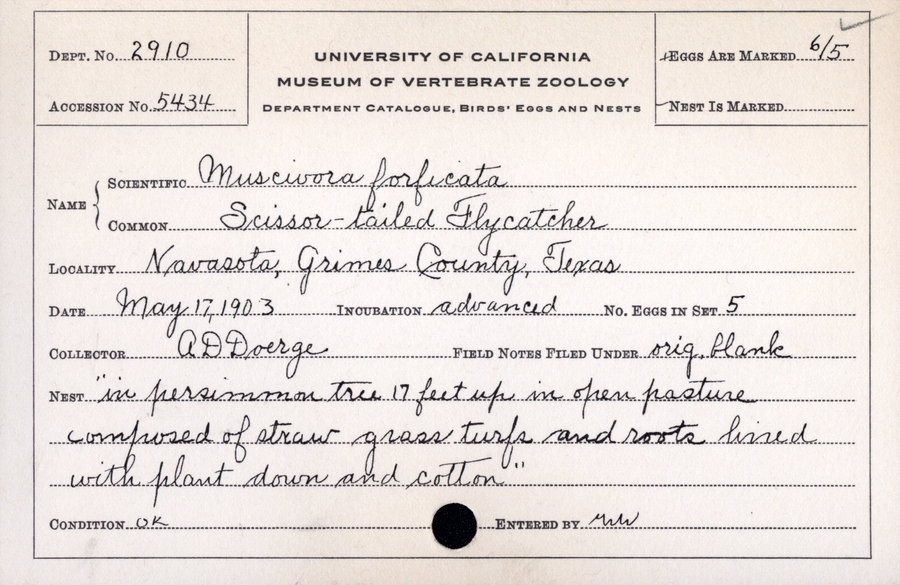 DEPT. NO. 2910
ACCESSION NO. 5434
UNIVERSITY OF CALIFORNIA
MUSEUM OF VERTEBRATE ZOOLOGY
DEPARTMENT CATALOGUE, BIRDS' EGGS AND NESTS
EGGS ARE MARKED 6/5
NEST IS MARKED
NAME
SCIENTIFIC Muscivora forficata
COMMON Scissor-tailed Flycatcher
LOCALITY Navasota, Grimes County, Texas
DATE May 17, 1903 INCUBATION advanced NO. EGGS IN SET 5
COLLECTOR A D Doerge FIELD NOTES FILED UNDER orig. blank
NEST "in persimmon tree 17 feet up in open pasture
composed of straw grass turfs and roots lined
with plant down and cotton"
CONDITION OK ENTERED BY